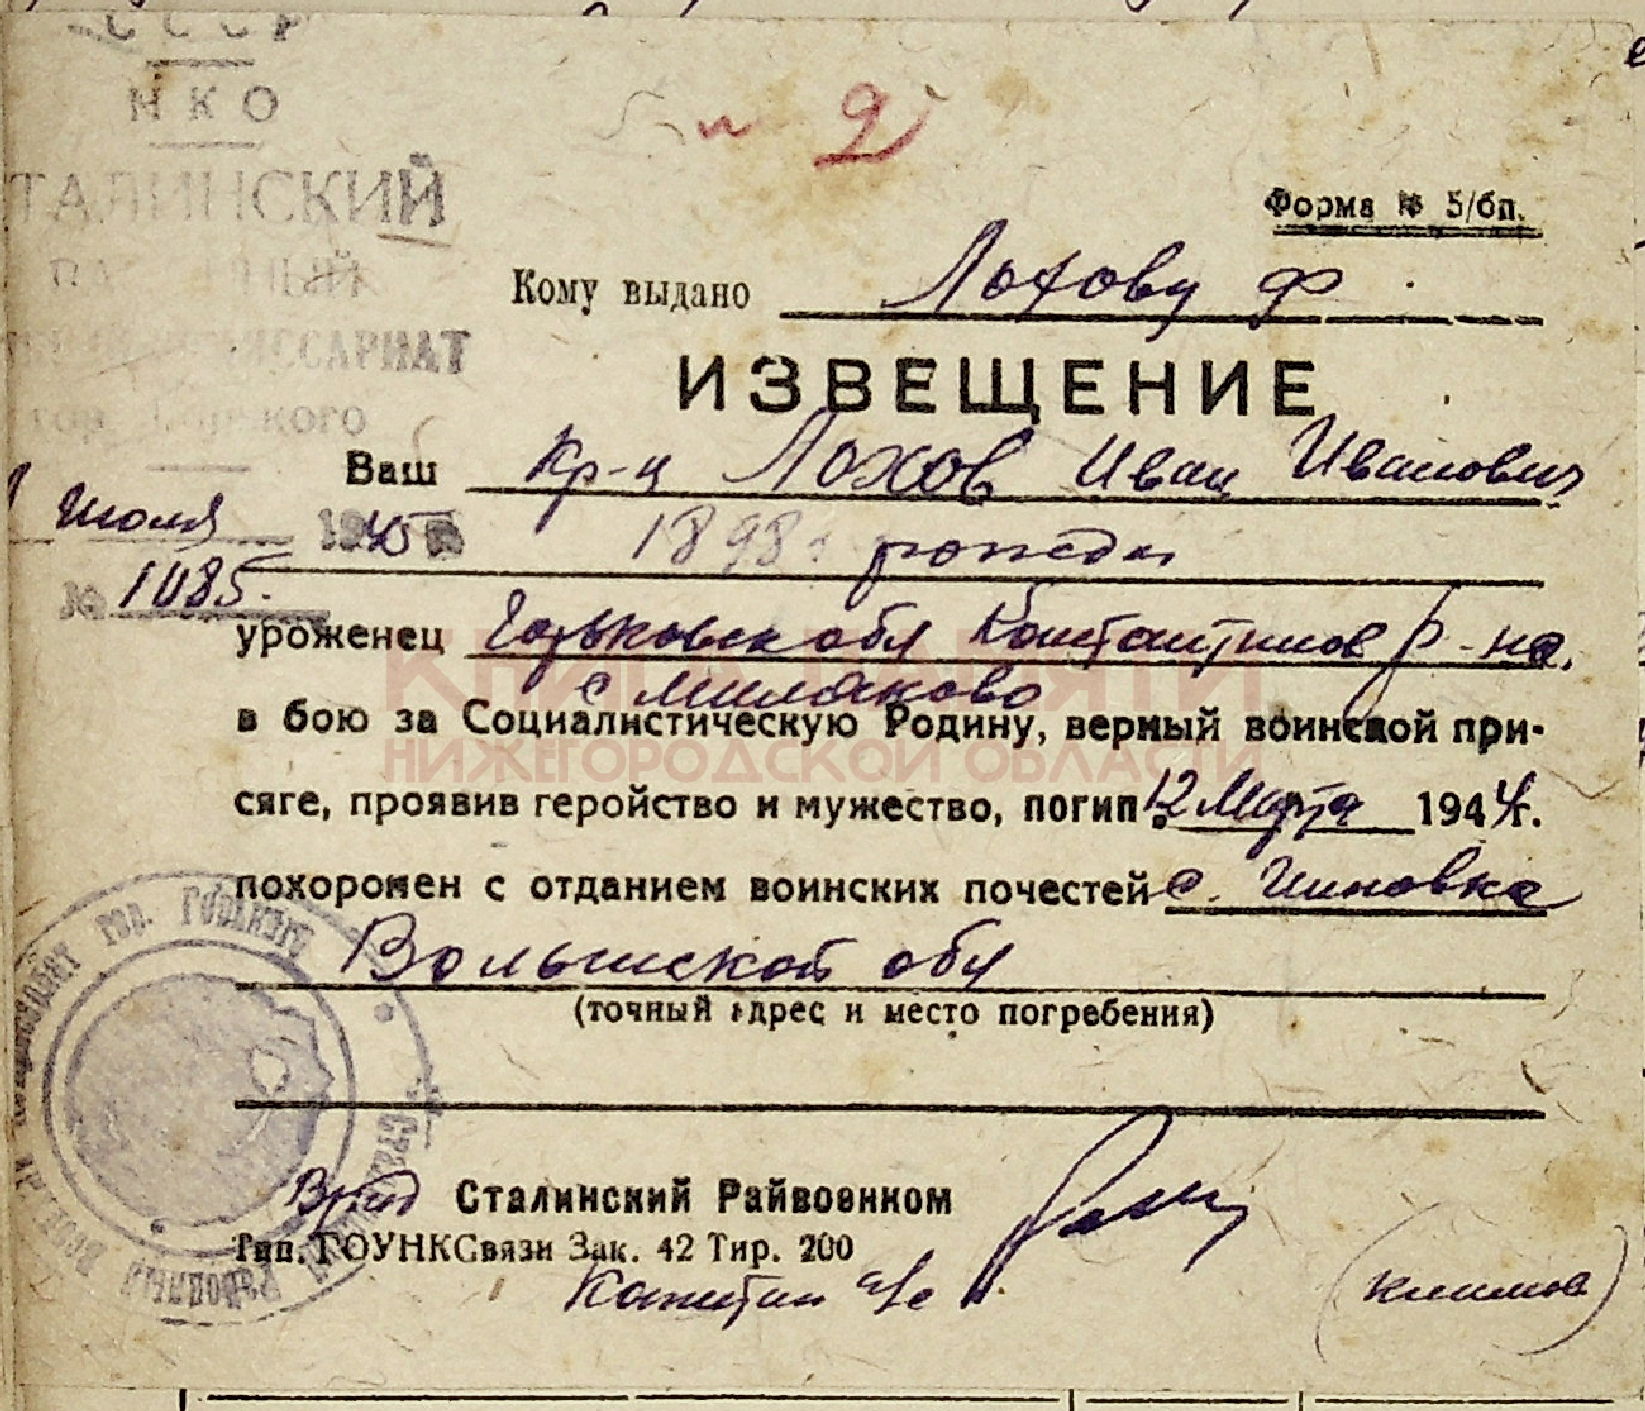 СССР
НКО
ТАЛИНСКИЙ
КОМИССАРИАТ
гор. Горького
Июля 1945
№ 1085.
2
Форма № 5/бп.
Кому выдано Лохову Ф
ИЗВЕЩЕНИЕ
Ваш кр-ц Лохов Иван Иванович
1898 г рожден
уроженец Горьковск обл Константинов р-на,
с
в бою за Социалистическую Родину, верный воинской при-
сяге, проявив геройство и мужество, погиб 12 Марта 1944г.
похоронен с отданием воинских почестей с.
Волынской обл
(точный адрес и место погребения)
Врид Сталинский Райвоенком
Тип. ГОУНКСвязи Зак. 42 Тир. 200
Капитан
(Климов)
КНИГА ПАМЯТИ
НИЖЕГОРОДСКОЙ ОБЛАСТИ